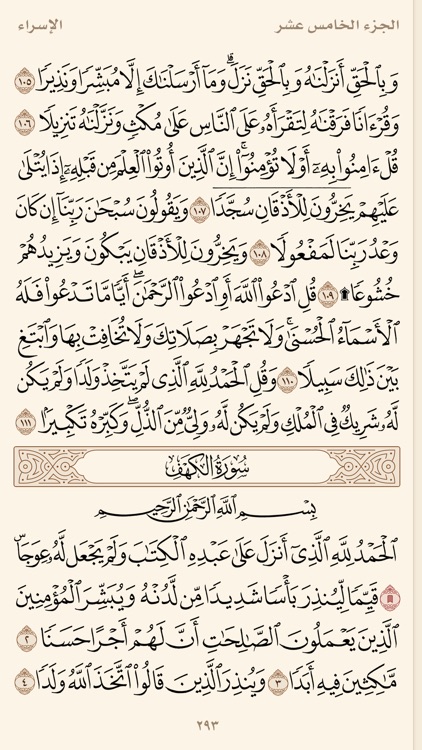 الجزء الخامس عشر
الإسراء
وَبِٱلۡحَقِّ أَنزَلۡنَٰهُ وَبِٱلۡحَقِّ نَزَلَۗ وَمَآ أَرۡسَلۡنَٰكَ إِلَّا مُبَشِّرٗا وَنَذِيرٗا ١٠٥
وَقُرۡءَانٗا فَرَقۡنَٰهُ لِتَقۡرَأَهُۥ عَلَى ٱلنَّاسِ عَلَىٰ مُكۡثٖ وَنَزَّلۡنَٰهُ تَنزِيلٗا ١٠٦
قُلۡ ءَامِنُواْ بِهِۦٓ أَوۡ لَا تُؤۡمِنُوٓاْۚ إِنَّ ٱلَّذِينَ أُوتُواْ ٱلۡعِلۡمَ مِن قَبۡلِهِۦٓ إِذَا يُتۡلَىٰ
عَلَيۡهِمۡ يَخِرُّونَۤ لِلۡأَذۡقَانِۤ سُجَّدٗاۤ ١٠٧ وَيَقُولُونَ سُبۡحَٰنَ رَبِّنَآ إِن كَانَ
وَعۡدُ رَبِّنَا لَمَفۡعُولٗا ١٠٨ وَيَخِرُّونَ لِلۡأَذۡقَانِ يَبۡكُونَ وَيَزِيدُهُمۡ
خُشُوعٗا ۩ ١٠٩ قُلِ ٱدۡعُواْ ٱللَّهَ أَوِ ٱدۡعُواْ ٱلرَّحۡمَٰنَۖ أَيّٗا مَّا تَدۡعُواْ فَلَهُ
ٱلۡأَسۡمَآءُ ٱلۡحُسۡنَىٰۚ وَلَا تَجۡهَرۡ بِصَلَاتِكَ وَلَا تُخَافِتۡ بِهَا وَٱبۡتَغِ
بَيۡنَ ذَٰلِكَ سَبِيلٗا ١١٠ وَقُلِ ٱلۡحَمۡدُ لِلَّهِ ٱلَّذِي لَمۡ يَتَّخِذۡ وَلَدٗا وَلَمۡ يَكُن
لَّهُۥ شَرِيكٞ فِي ٱلۡمُلۡكِ وَلَمۡ يَكُن لَّهُۥ وَلِيّٞ مِّنَ ٱلذُّلِّۖ وَكَبِّرۡهُ تَكۡبِيرَۢا ١١١
سُورَةُ الكَهۡفِ
بِسۡمِ ٱللَّهِ ٱلرَّحۡمَٰنِ ٱلرَّحِيمِ
ٱلۡحَمۡدُ لِلَّهِ ٱلَّذِيٓ أَنزَلَ عَلَىٰ عَبۡدِهِ ٱلۡكِتَٰبَ وَلَمۡ يَجۡعَل لَّهُۥ عِوَجَاۜ
١ قَيِّمٗا لِّيُنذِرَ بَأۡسٗا شَدِيدٗا مِّن لَّدُنۡهُ وَيُبَشِّرَ ٱلۡمُؤۡمِنِينَ
ٱلَّذِينَ يَعۡمَلُونَ ٱلصَّٰلِحَٰتِ أَنَّ لَهُمۡ أَجۡرًا حَسَنٗا ٢
مَّٰكِثِينَ فِيهِ أَبَدٗا ٣ وَيُنذِرَ ٱلَّذِينَ قَالُواْ ٱتَّخَذَ ٱللَّهُ وَلَدٗا ٤
٢٩٣